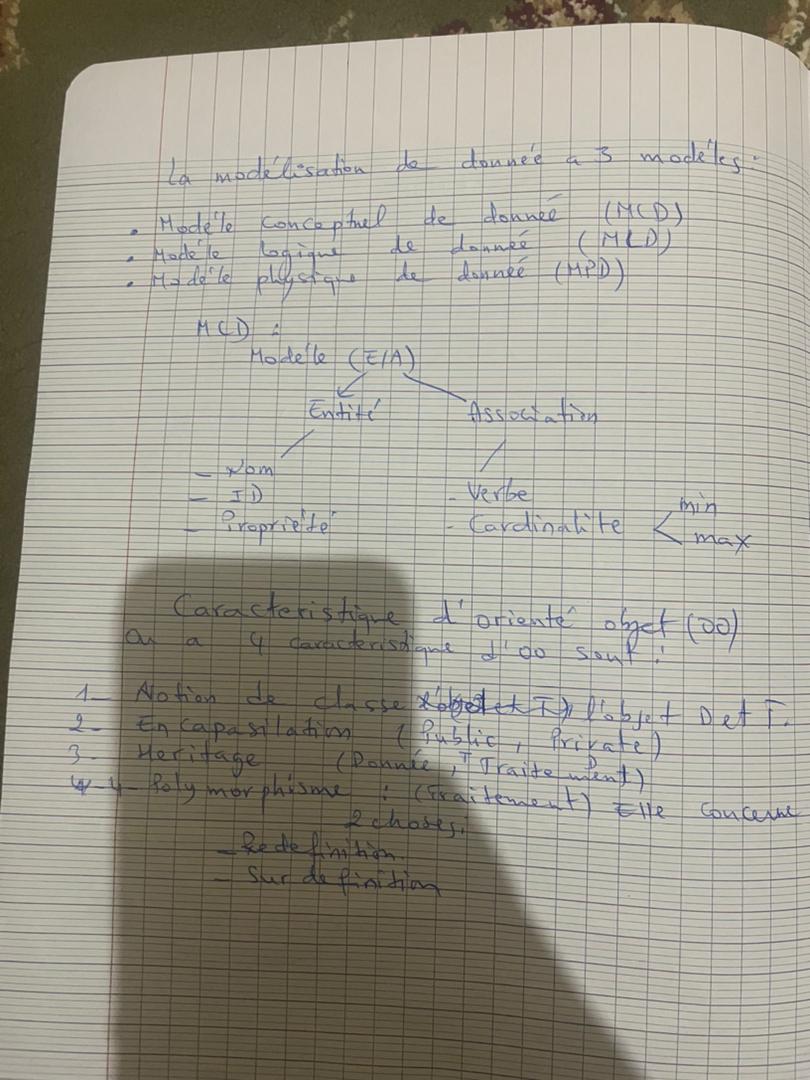 La modélisation de donnée a 3 modèles:
. Modèle conceptuel de donnée (MCD)
. Modèle logique de donnée (MLD)
. Modèle physique de donnée (MPD)
MCD :
Modèle (E/A)
Entité Association
- Nom - Verbe
- ID - Cardinalite < min max
- Propriété
Caracteristique d'orienté objet (OO)
On a 4 caracteristique d'OO sont :
1- Notion de classe l'objet D et T.
2- Encapasilation (Public, Private)
3- Heritage (Donnée, Traitement)
4- Polymorphisme : (Traitement) Elle concerne
2 choses.
- Redefinition.
- Surdefinition